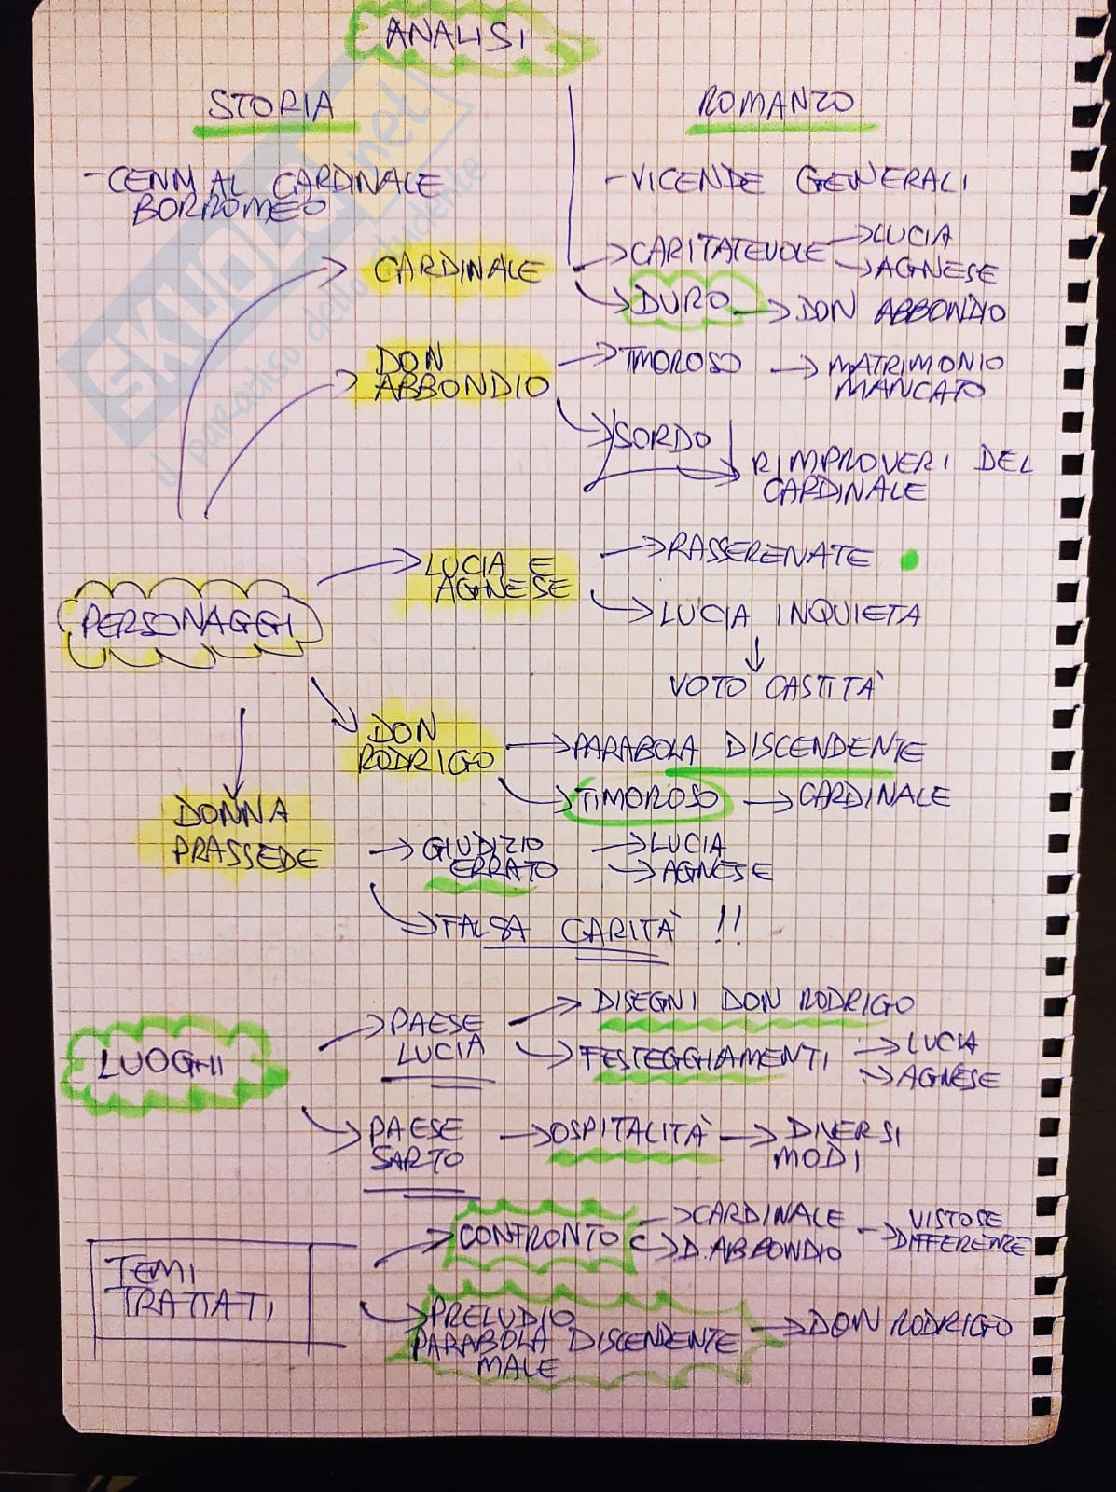 ANALISI
STORIA
ROMANZO
- CENNI AL CARDINALE
BORROMEO
- VICENDE GENERALI
CARDINALE
CARITATEVOLE
LUCIA
AGNESE
DURO
DON ABBONDIO
DON
ABBONDIO
TIMOROSO
MATRIMONIO
MANCATO
SORDO
RIMPROVERI DEL
CARDINALE
PERSONAGGI
LUCIA E
AGNESE
RASSERENATE
LUCIA INQUIETA
VOTO CASTITÀ
DON
RODRIGO
PARABOLA DISCENDENTE
TIMOROSO
CARDINALE
DONNA
PRASSEDE
GIUDIZIO
ERRATO
LUCIA
AGNESE
FALSA CARITÀ !!
LUOGHI
PAESE
LUCIA
DISEGNI DON RODRIGO
FESTEGGIAMENTI
LUCIA
AGNESE
PAESE
SARTO
OSPITALITÀ
DIVERSI
MODI
TEMI
TRATTATI
CONFRONTO
CARDINALE
D. ABBONDIO
VISTOSE
DIFFERENZE
PRELUDIO
PARABOLA DISCENDENTE
MALE
DON RODRIGO
SKUOLA.net
il paradiso dello studente